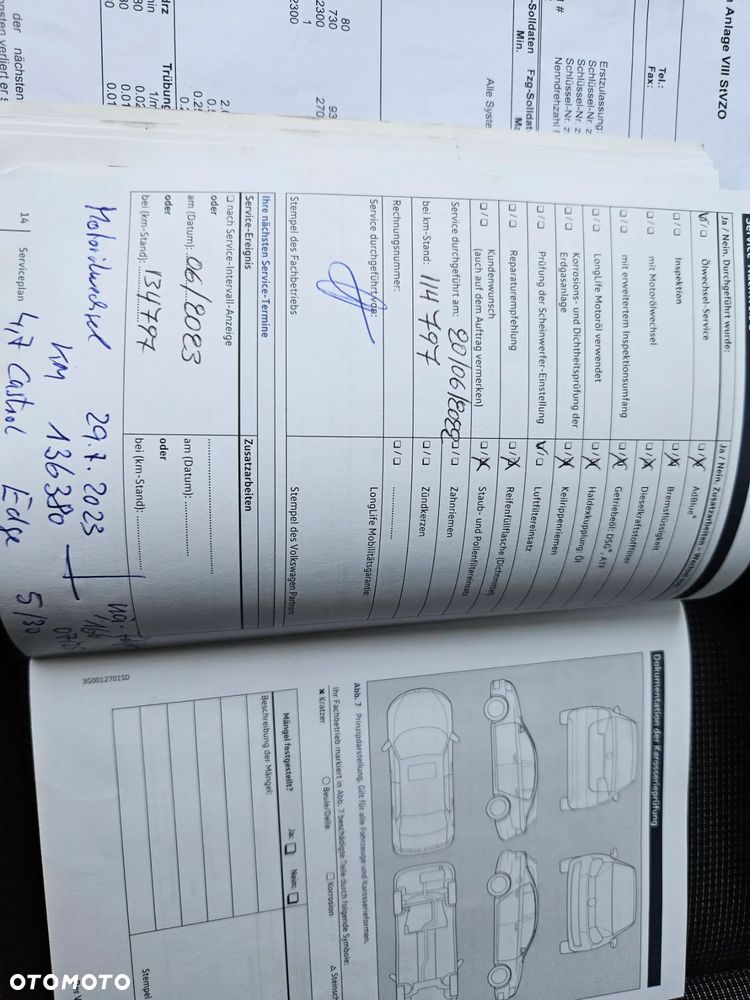 Anlage VIII StVZO
Tel.:
Fax:
Erstzulassung:
Schlüssel-Nr. z
Schlüssel-Nr. z
Schlüssel-Nr. z
Nenndrehzahl
-Solldaten Fzg-Solldat
Min.
Alle Syste
80
730
2300
1
2300
93
270
Trübung
1/m
0.02
0.01
0.01
der nächsten
Ja / Nein. Durchgeführt wurde:
Ölwechsel-Service
Inspektion
mit Motorölwechsel
mit erweitertem Inspektionsumfang
LongLife Motoröl verwendet
Korrosions- und Dichtheitsprüfung der
Erdgasanlage
Prüfung der Scheinwerfer-Einstellung
Reparaturempfehlung
Kundenwunsch
(auch auf dem Auftrag vermerken)
Service durchgeführt am: 20/06/2022
bei km-Stand: 114 797
Rechnungsnummer:
Service durchgeführt von:
Stempel des Fachbetriebs
Ja / Nein. Zusatzarbeiten -
AdBlue®
Bremsflüssigkeit
Dieselkraftstofffilter
Getriebeöl: DSG®, ATF
Haldexkupplung: Öl
Keilrippenriemen
Luftfiltereinsatz
Reifenfüllflasche (Dichtmittel)
Staub- und Pollenfiltereinsatz
Zahnriemen
Zündkerzen
LongLife Mobilitätsgarantie:
Stempel des Volkswagen Partners
Ihre nächsten Service-Termine
Service-Ereignis
nach Service-Intervall-Anzeige
oder
am (Datum): 06/2023
oder
bei (km-Stand): 134797
Zusatzarbeiten
am (Datum):
oder
bei (km-Stand):
29.7.2023
KM 136380
4,7 Castrol Edge 5/30
14 Serviceplan
Dokumentation der Karosserieprüfung
Abb. 7 Prinzipdarstellung. Gilt für alle Fahrzeuge und Karosserieformen.
Ihr Fachbetrieb markiert in Abb. 7 beschädigte Teile durch folgende Symbole:
Kratzer Beule/Delle Korrosion Steinsch
Mängel festgestellt? Ja: Nein:
Beschreibung der Mängel:
Stempel
3G0012701SD
OTOMOTO